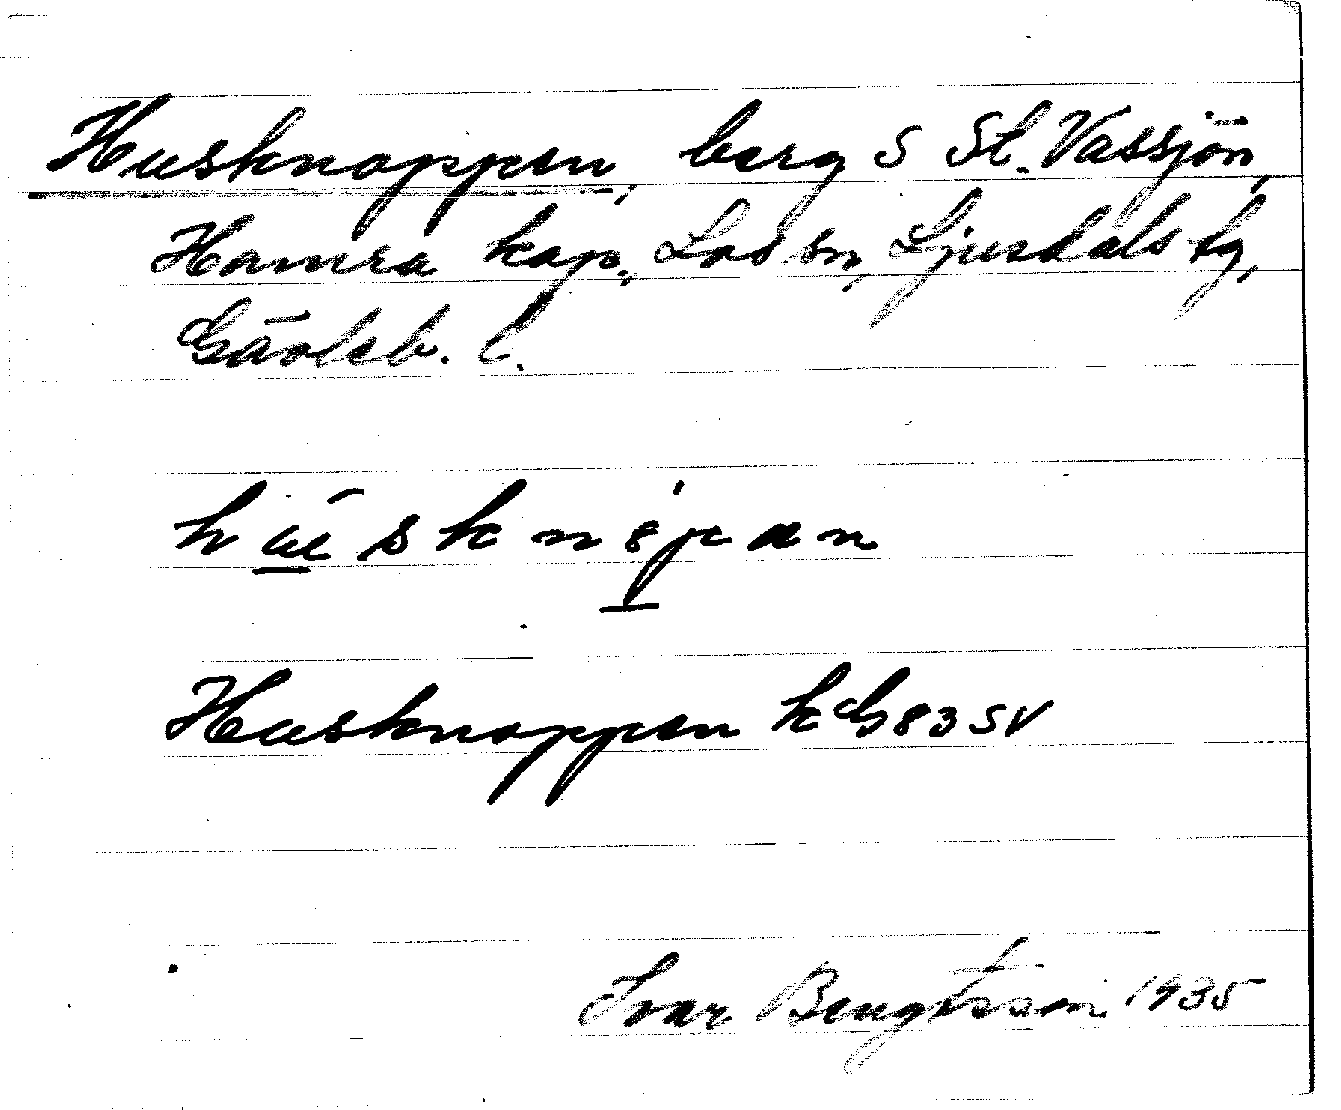 Husknoppen, berg S St. Vassjön,
Hamra kap., Los sn, Ljusdals tg,
Gävleb. l.
Husknoppen k G 83 SV
Ivar Bengtsson 1935